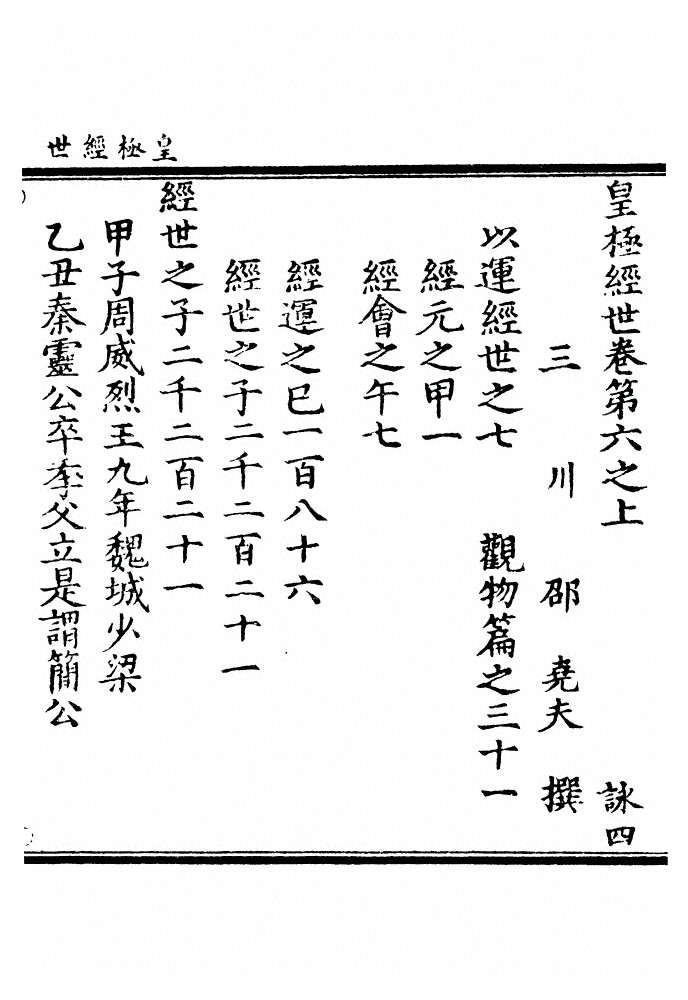 皇極經世
皇極經世卷第六之上 詠四
三川 邵堯夫 撰
以運經世之七 觀物篇之三十一
經元之甲一
經會之午七
經運之巳一百八十六
經世之子二千二百二十一
經世之子二千二百二十一
甲子周威烈王九年魏城少梁
乙丑秦靈公卒季父立是謂簡公